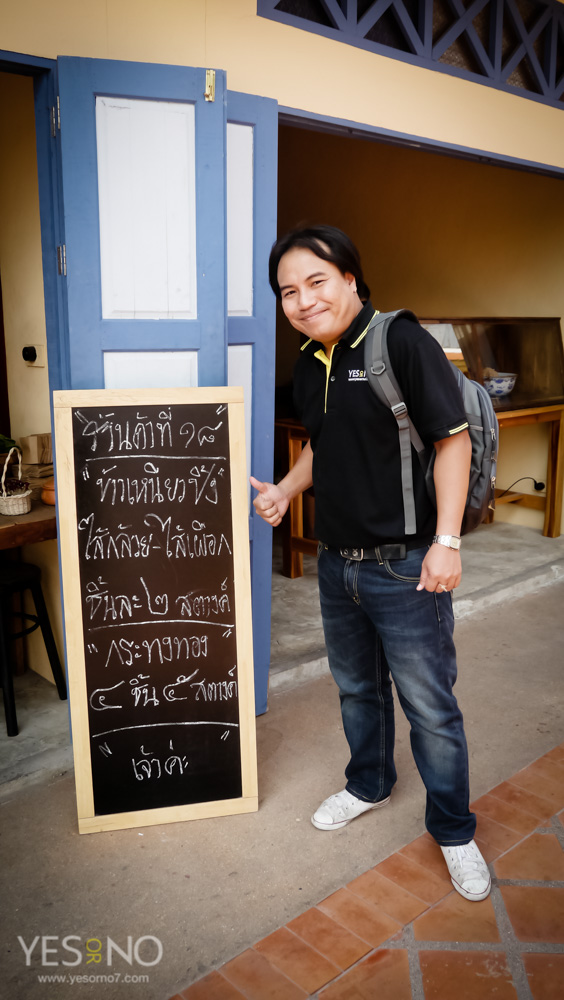 "ร้านค้าที่ ๑๘"
"ข้าวเหนียวปิ้ง"
ไส้กล้วย-ไส้เผือก
ชิ้นละ ๒ สตางค์
"กระทงทอง"
๔ ชิ้น ๕ สตางค์
"เจ้าค่ะ"
YES OR NO
YES OR NO
www.yesorno7.com